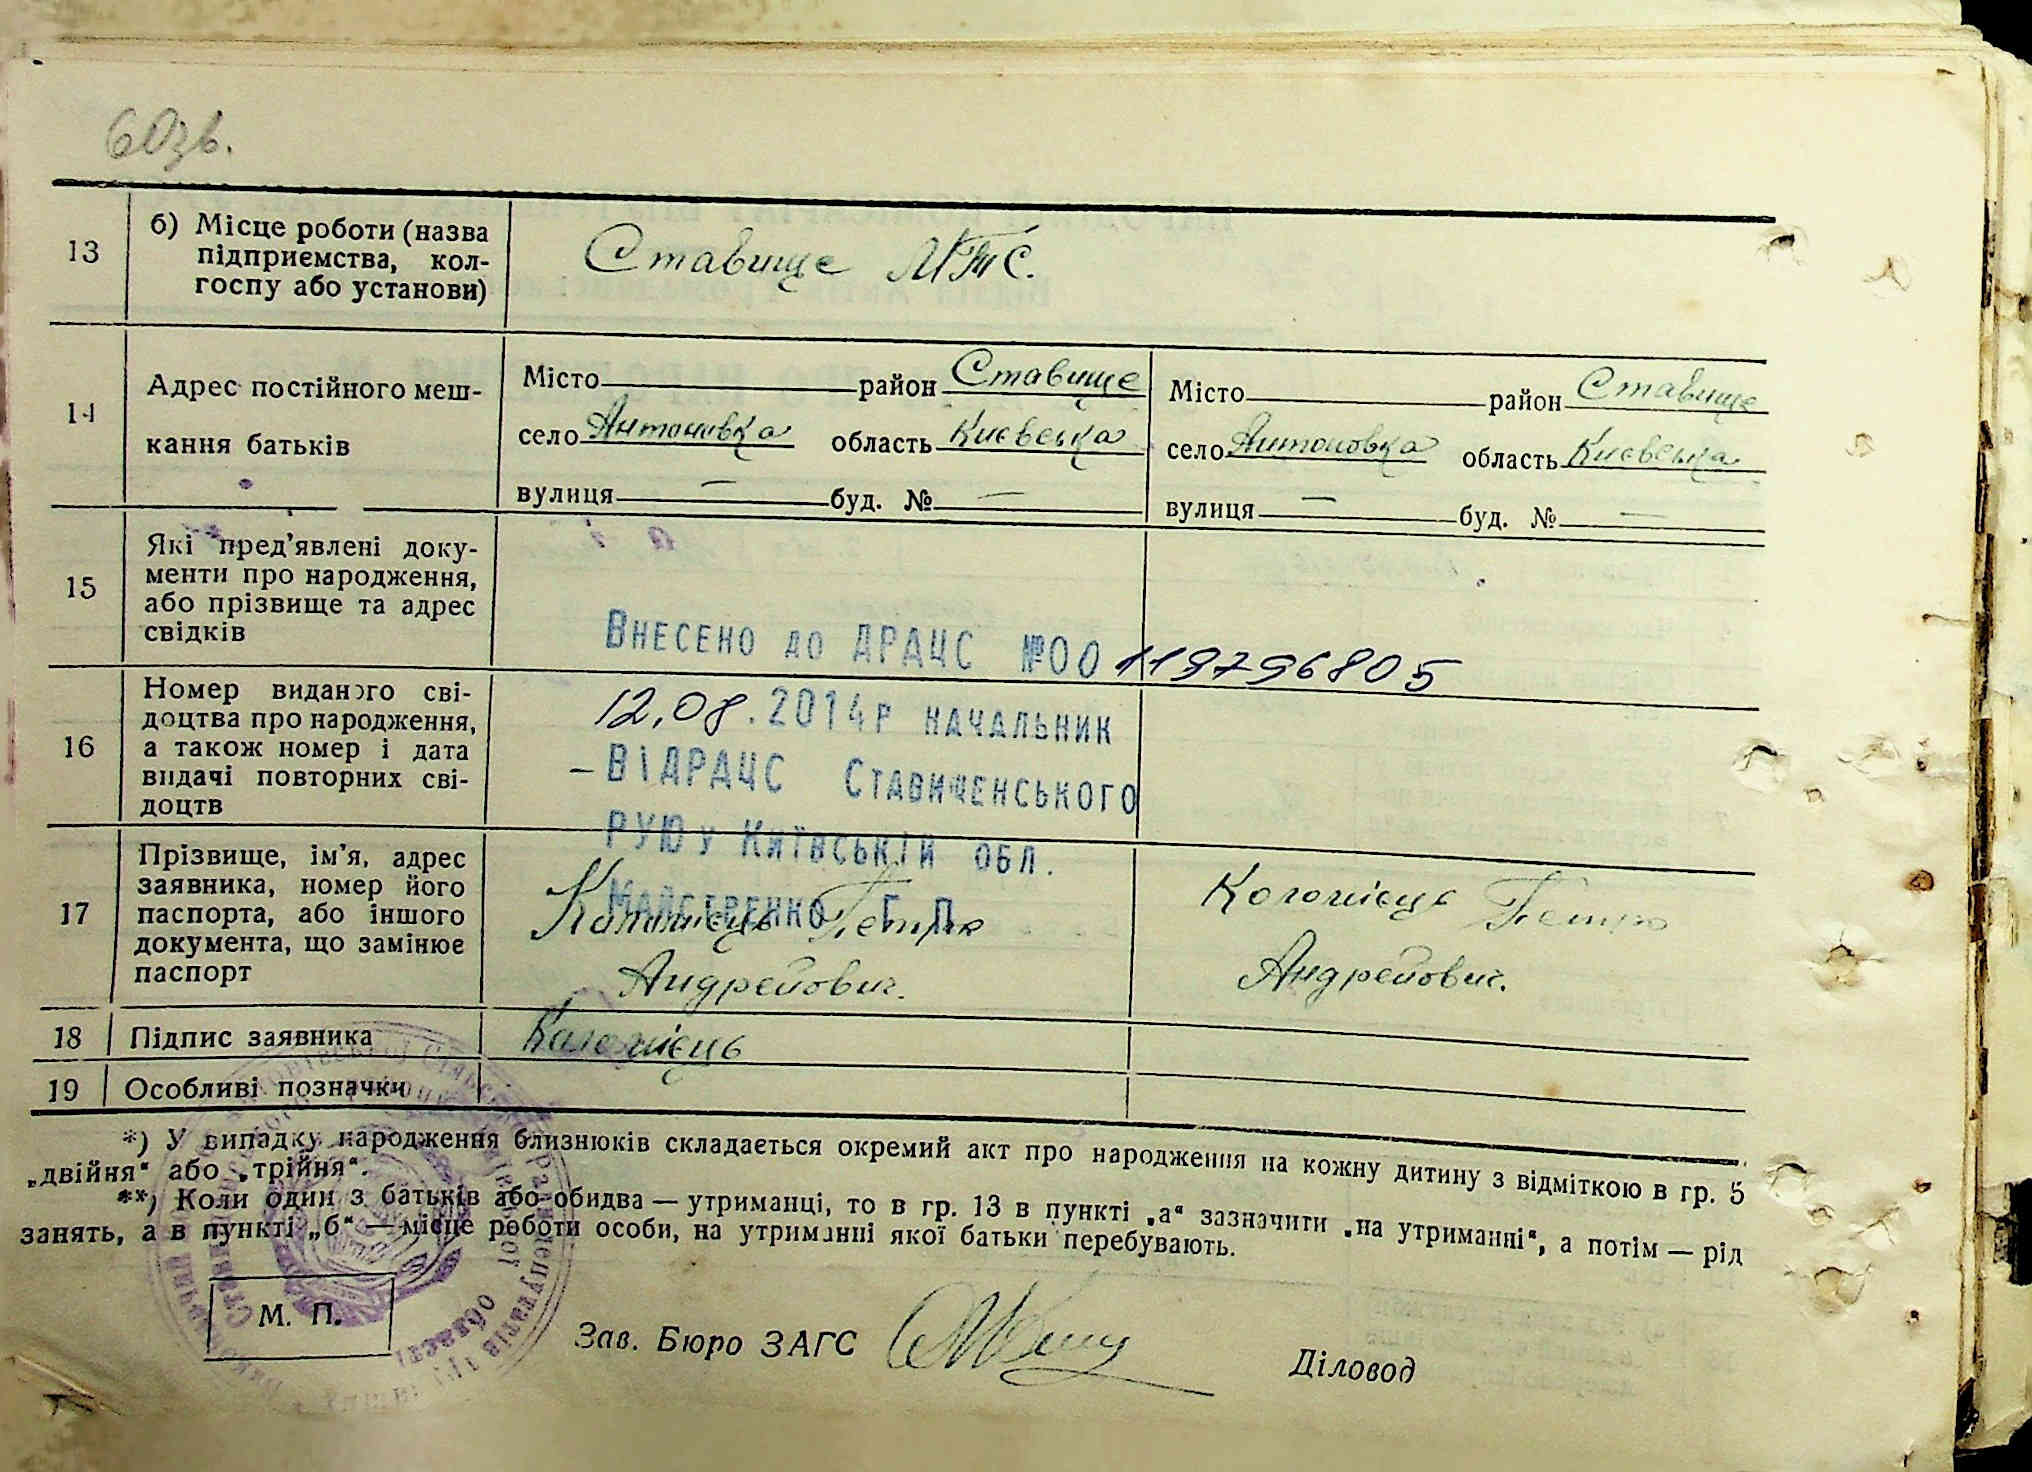 60зв.
13
б) Місце роботи (назва
підприємства, кол-
госпу або установи)
Ставище МТС.
14
Адрес постійного меш-
кання батьків
Місто район Ставище
село Антоновка область Києвська
вулиця — буд. № —
Місто район Ставище
село Антоновка область Києвська
вулиця — буд. № —
15
Які пред'явлені доку-
менти про народження,
або прізвище та адрес
свідків
Внесено до ДРАЦС №00119796805
16
Номер виданого сві-
доцтва про народження,
а також номер і дата
видачі повторних сві-
доцтв
12.08.2014р начальник
– ВіДРАЦС Ставищенського
РУЮ у Київській обл.
Майстренко Г.П.
17
Прізвище, ім'я, адрес
заявника, номер його
паспорта, або іншого
документа, що замінює
паспорт
Коломієць Петро
Андрейович.
Коломієць Петро
Андрейович.
18
Підпис заявника
Коломієць
19
Особливі позначки
*) У випадку народження близнюків складається окремий акт про народження на кожну дитину з відміткою в гр. 5
„двійня“ або „трійня“.
**) Коли один з батьків або обидва — утриманці, то в гр. 13 в пункті „а“ зазначити „на утриманні“, а потім — рід
занять, а в пункті „б“ — місце роботи особи, на утриманні якої батьки перебувають.
М. П.
Зав. Бюро ЗАГС
Діловод